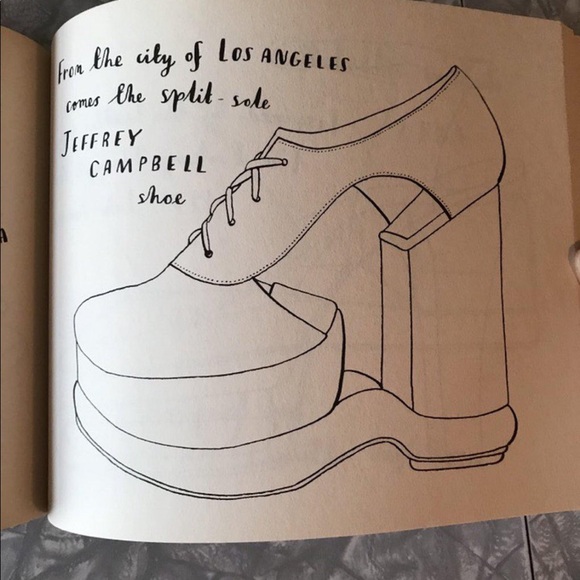 From the city of LOS ANGELES
comes the split-sole
JEFFREY
CAMPBELL
shoe
A